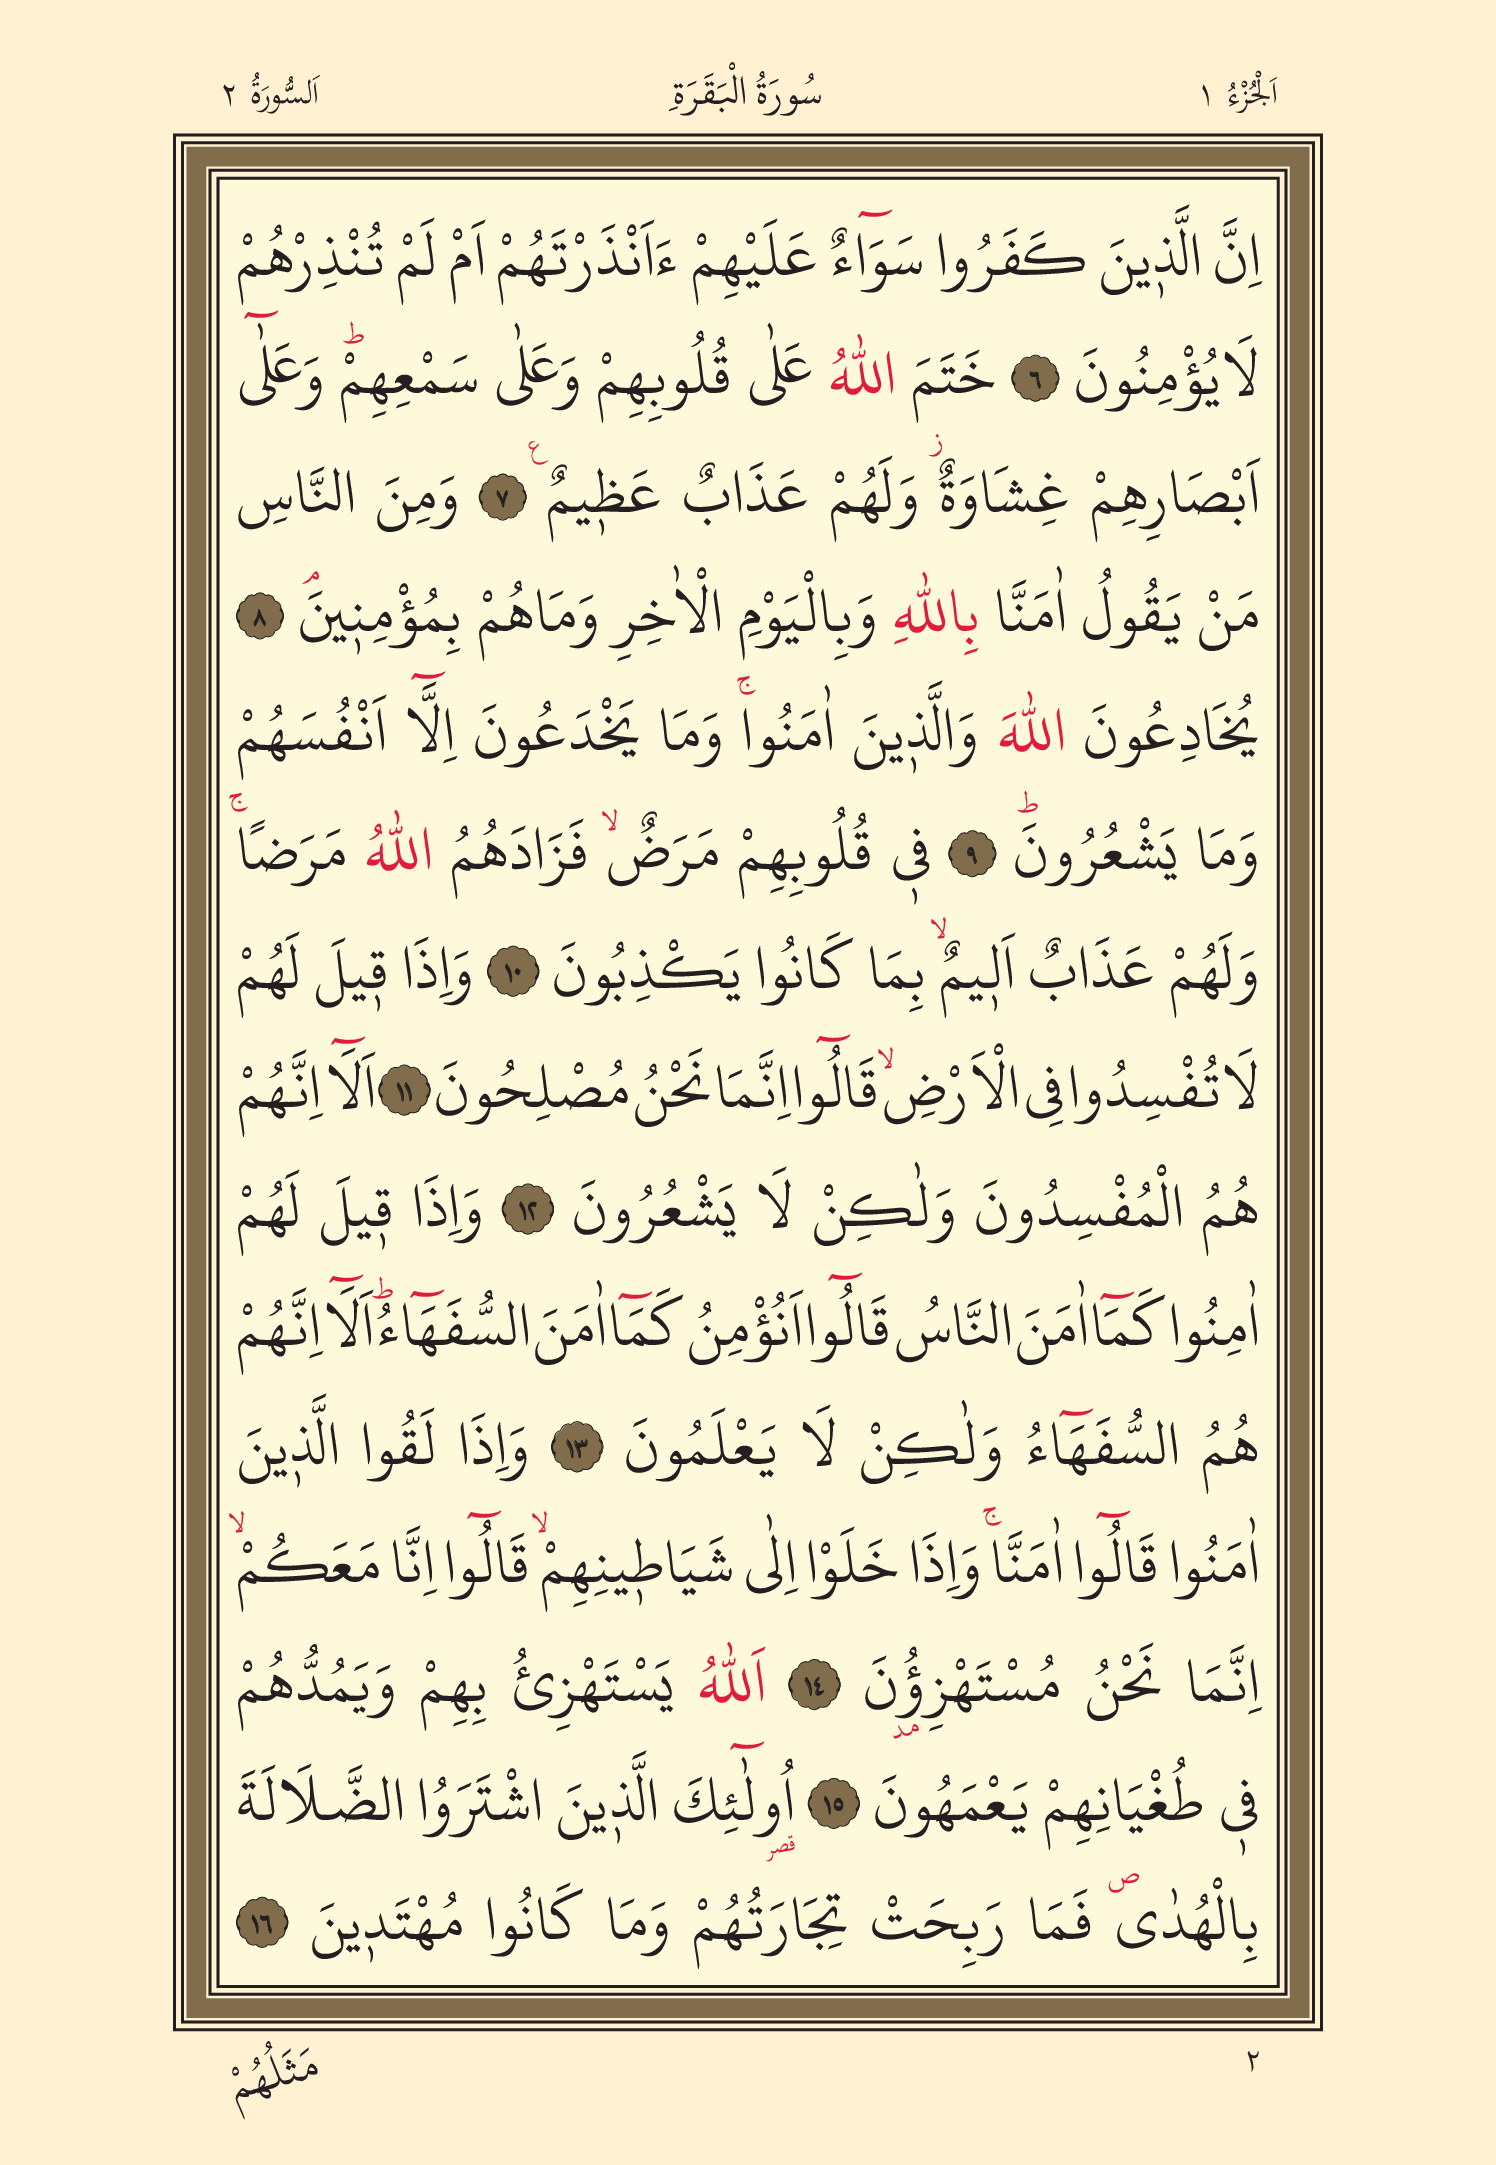 اَلْجُزْءُ ١ سُورَةُ الْبَقَرَةِ اَلسُّورَةُ ٢
اِنَّ الَّذٖينَ كَفَرُوا سَوَٓاءٌ عَلَيْهِمْ ءَاَنْذَرْتَهُمْ اَمْ لَمْ تُنْذِرْهُمْ
لَا يُؤْمِنُونَ ٦ خَتَمَ اللّٰهُ عَلٰى قُلُوبِهِمْ وَعَلٰى سَمْعِهِمْؕ وَعَلٰٓى
اَبْصَارِهِمْ غِشَاوَةٌؗ وَلَهُمْ عَذَابٌ عَظٖيمٌ ع ٧ وَمِنَ النَّاسِ
مَنْ يَقُولُ اٰمَنَّا بِاللّٰهِ وَبِالْيَوْمِ الْاٰخِرِ وَمَاهُمْ بِمُؤْمِنٖينَۘ ٨
يُخَادِعُونَ اللّٰهَ وَالَّذٖينَ اٰمَنُواۚ وَمَا يَخْدَعُونَ اِلَّٓا اَنْفُسَهُمْ
وَمَا يَشْعُرُونَؕ ٩ فٖى قُلُوبِهِمْ مَرَضٌۙ فَزَادَهُمُ اللّٰهُ مَرَضًاۚ
وَلَهُمْ عَذَابٌ اَلٖيمٌۙ بِمَا كَانُوا يَكْذِبُونَ ١٠ وَاِذَا قٖيلَ لَهُمْ
لَا تُفْسِدُوا فِى الْاَرْضِۙ قَالُٓوا اِنَّمَا نَحْنُ مُصْلِحُونَ ١١ اَلَٓا اِنَّهُمْ
هُمُ الْمُفْسِدُونَ وَلٰكِنْ لَا يَشْعُرُونَ ١٢ وَاِذَا قٖيلَ لَهُمْ
اٰمِنُوا كَمَٓا اٰمَنَ النَّاسُ قَالُٓوا اَنُؤْمِنُ كَمَٓا اٰمَنَ السُّفَهَٓاءُؕ اَلَٓا اِنَّهُمْ
هُمُ السُّفَهَٓاءُ وَلٰكِنْ لَا يَعْلَمُونَ ١٣ وَاِذَا لَقُوا الَّذٖينَ
اٰمَنُوا قَالُٓوا اٰمَنَّاۚ وَاِذَا خَلَوْا اِلٰى شَيَاطٖينِهِمْۙ قَالُٓوا اِنَّا مَعَكُمْۙ
اِنَّمَا نَحْنُ مُسْتَهْزِؤُنَ ١٤ اَللّٰهُ يَسْتَهْزِئُ بِهِمْ وَيَمُدُّهُمْ
مد
فٖى طُغْيَانِهِمْ يَعْمَهُونَ ١٥ اُولٰٓئِكَ الَّذٖينَ اشْتَرَوُا الضَّلَالَةَ
قصر
بِالْهُدٰى ص فَمَا رَبِحَتْ تِجَارَتُهُمْ وَمَا كَانُوا مُهْتَدٖينَ ١٦
٢ مَثَلُهُمْ